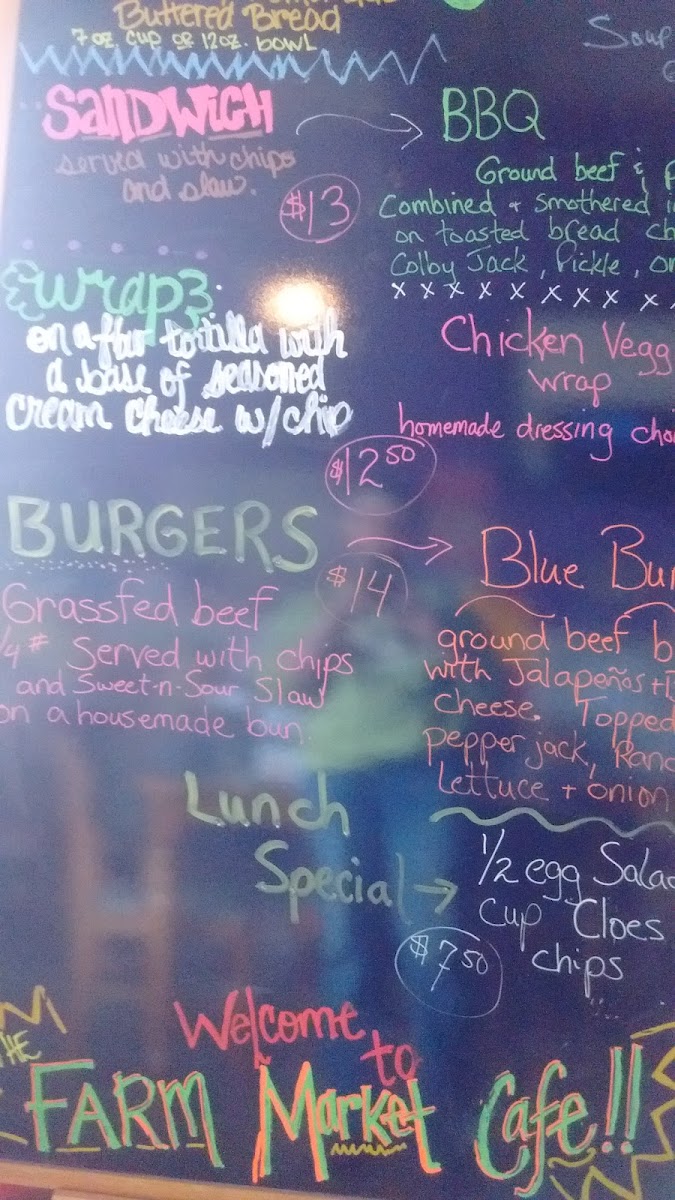 Buttered Bread
7 oz. cup or 12oz. bowl
Soup
Sandwich
served with chips
and slaw.
$13
BBQ
Ground beef &
Combined + smothered
on toasted bread
Colby Jack, Pickle,
x x x x x x x x x x
{wrap}
on a flour tortilla with
a base of seasoned
cream cheese w/chip
$12.50
Chicken Vegg
wrap
homemade dressing
BURGERS
$14
Grassfed beef
1/4 # Served with chips
and Sweet-n-Sour Slaw
on a housemade bun.
Blue Bu
ground beef b
with Jalapeños +
cheese. Topped
pepper jack, Ranc
Lettuce + onion
Lunch
Special
$7.50
1/2 egg Sala
cup Cloes
chips
Welcome
to
THE
FARM Market Cafe!!